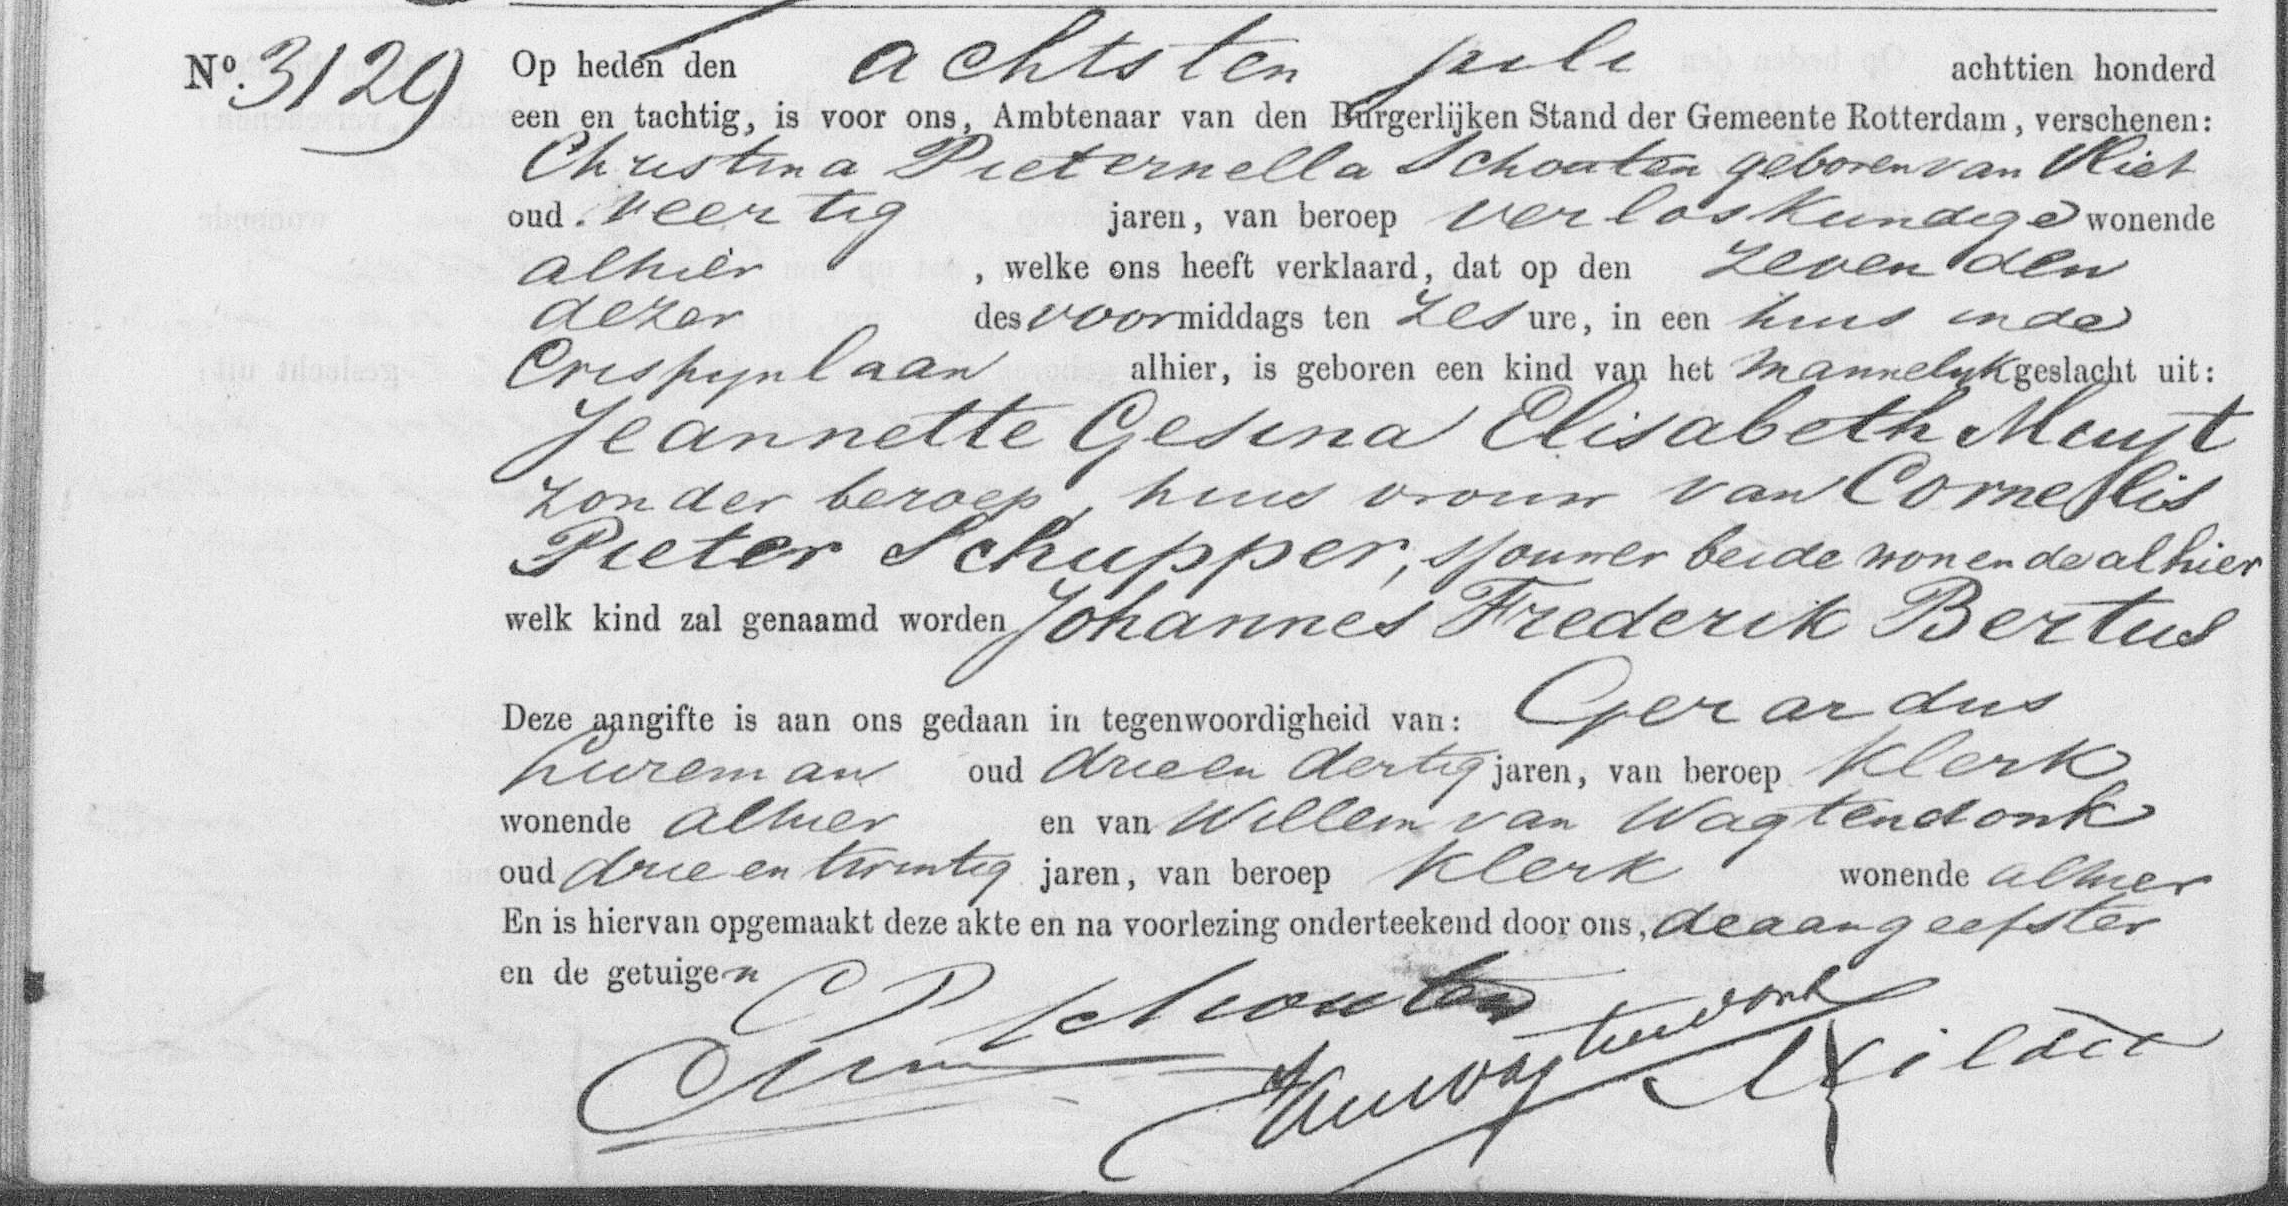 No. 3129 Op heden den achtsten juli achttien honderd
een en tachtig, is voor ons, Ambtenaar van den Burgerlijken Stand der Gemeente Rotterdam, verschenen:
Christina Pieternella Schouten geboren van Vliet
oud veertig jaren, van beroep verloskundige wonende
alhier, welke ons heeft verklaard, dat op den zevenden
dezer des voormiddags ten zes ure, in een huis in de
Crispynlaan alhier, is geboren een kind van het mannelijk geslacht uit:
Jeannette Gesina Elisabeth Muijt
zonder beroep, huisvrouw van Cornellis
Pieter Schupper, sjouwer beide wonende alhier
welk kind zal genaamd worden Johannes Frederik Bertus
Deze aangifte is aan ons gedaan in tegenwoordigheid van: Gerardus
Lureman oud drie en dertig jaren, van beroep klerk
wonende alhier en van Willem van Wagtendonk
oud drie en twintig jaren, van beroep klerk wonende alhier
En is hiervan opgemaakt deze akte en na voorlezing onderteekend door ons, de aangeefster
en de getuigen
C P Schouten